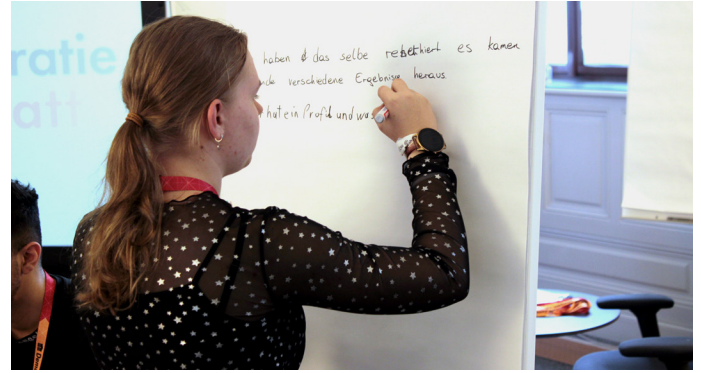 ratie
att
haben das selbe rechechiert es kamen
verschiedene Ergebnisse heraus
hat ein Profil und was